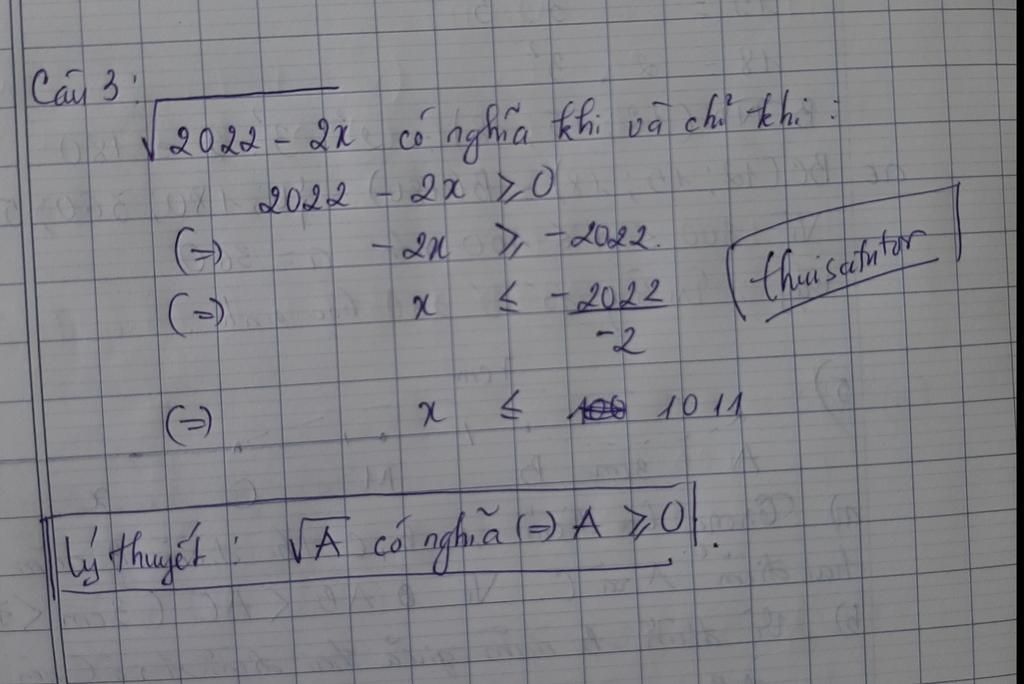 Câu 3:
√2022 - 2x có nghĩa khi và chỉ khi:
2022 - 2x ≥ 0
(=) -2x ≥ -2022.
(=) x ≤ -2022/-2
thuisatutor
(=) x ≤ 1011
Lý thuyết: √A có nghĩa (=) A ≥ 0.